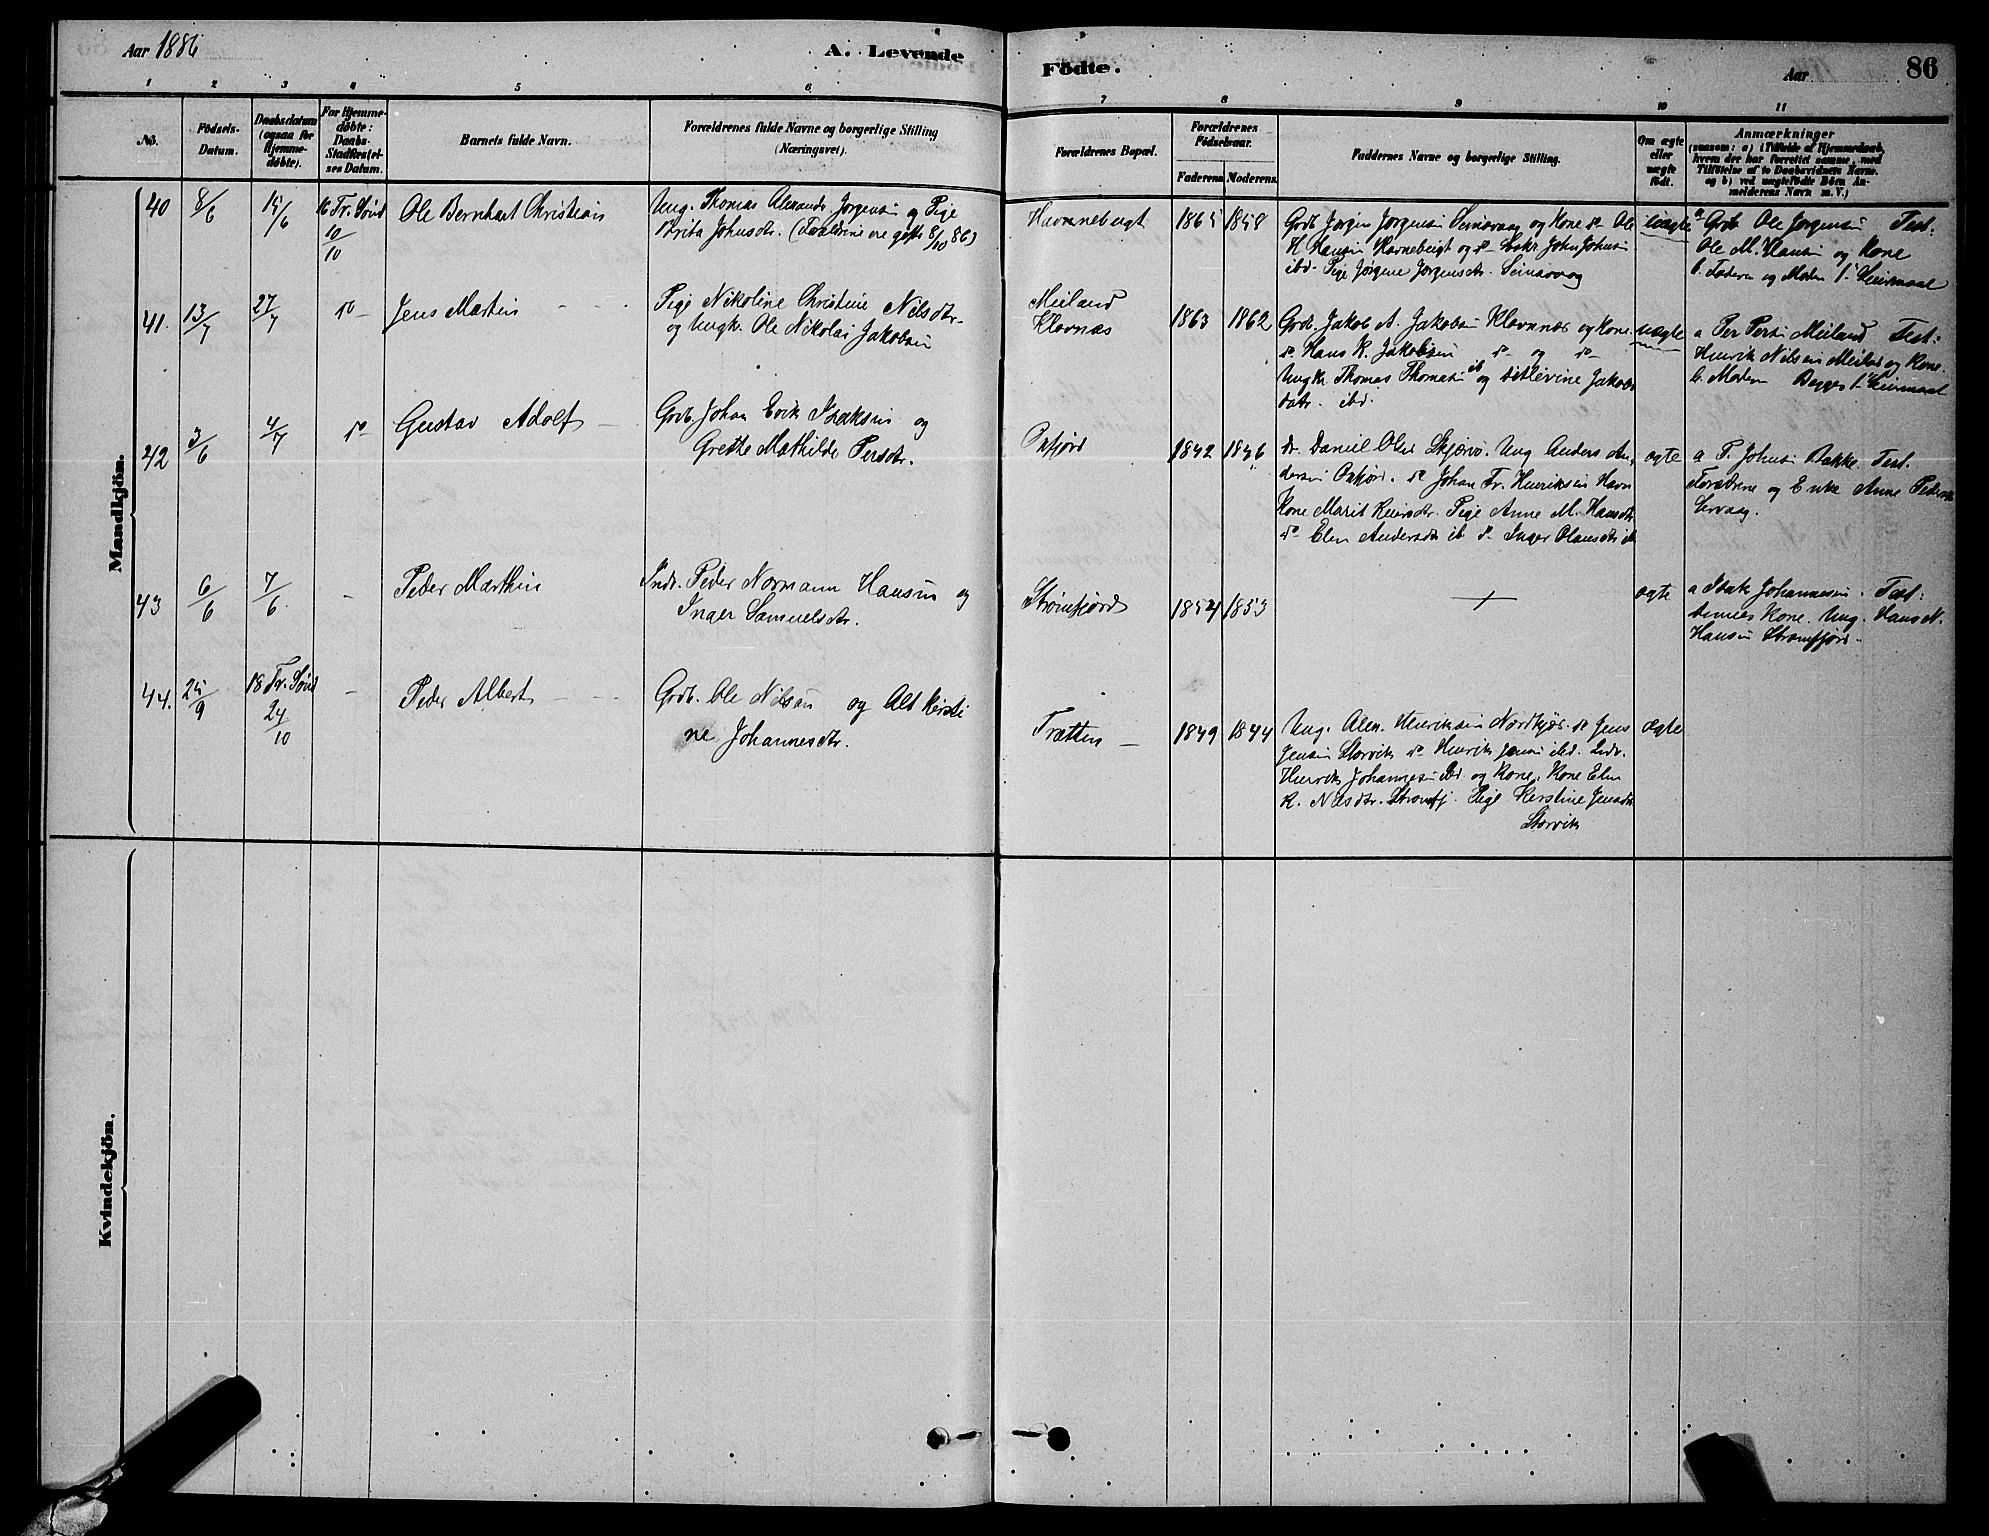 Aar 1886
A. Levende
Födte.
Aar
86
1 2 3 4 5 6
7 8 9 10 11
No.
Födsels-
Datum.
Daabsdatum
(ogsaa for
Hjemme-
døbte).
For Hjemme-
døbte:
Daabs-
Stadfæstel-
ses Datum.
Barnets fulde Navn.
Forældrenes fulde Navne og borgerlige Stilling
(Næringsvei).
Forældrenes Bopæl.
Forældrenes
Födselsaar.
Faderens. Moderens.
Faddernes Navne og borgerlige Stilling.
Om ægte
eller
uægte
født.
Anmærkninger
(saasom: a) i Tilfælde af Hjemmedaab,
hvem der har forrettet samme, med
Tilføielse af to Daabsvidners Navne.
og b) ved uægtefødte Börn An-
melderens Navn m. V.)
Mandkjön.
40
8/6
14/6
16 Tr. Sönd
10/10
Ole Bernhart Christian
Ung. Thomas Alexander Jørgensen og Pige
Brita Johnsdtr. (Forældrene ere gifte 8/10 86)
Havnnebugt
1865
1858
Grdb. Jørgen Jørgensen og Kone do Ole
H. Hansen Havnebugt og do John Johnsen
ibd. Pige Jørgine Jørgensdtr.
uægte
a Grdb Ole Jørgensen Test:
Ole M. Hansen og Kone
b. Faderen og Moder
41.
13/7
27/7
do
Jens Martin
Pige Nikoline Christine Nilsdtr
og Ungk. Ole Nikolai Jakobsen
Meiland
Klovnæs
1863
1862
Grdb. Jakob A. Jakobsen Klovnnæs og Kone
do Hans K. Jakobsen do og do
Ungk. Thomas Thomasen og Detlevine Jakobs
datr. ibd.
uægte
a Per Persen Meiland Test:
Henrik Nilsen Meiland og Kone.
b. Moderen Begges
42
3/6
4/7
do
Gustav Adolf
Grdb. Johan Erik Isaksen og
Grethe Mathilde Persdtr.
Oxfjord
1842
1846
do Daniel Olsen Skjervø. Ung Anders An-
dersen Oxfjord. do Johan Fr. Henriksen Havn
Kone Marit Reiersdtr. Pige Anne M. Hansdtr
do Elen Andersdtr ib do Inger Olausdtr ib
ægte
a P. Johnsen Bakke. Test.
Forældrene og Enke Anne Pedersdtr
43
6/6
7/6
Peder Marthin
Indr. Peder Normann Hansen og
Inger Samuelsdtr.
Strömfjord
1854
1853
ægte
a Isak Johannesen. Test:
dennes Kone. Ung. Hans N.
Hansen Strømfjord.
44.
25/9
18 Tr. Sönd
24/10
Peder Albert
Grdb. Ole Nilsen og Alet Kersti
ne Johannesdtr.
Trætten
1849
1844
Ung. Alex. Henriksen Nordkjos. do Jens
Jensen Storvik do Henrik Jensen ibd. Indr.
Henrik Johannesen ibd og Kone. Kone Elen
K. Nilsdtr. Strømfj. Pige Kerstine Jensdtr
Storvik
ægte
Kvindekjön.